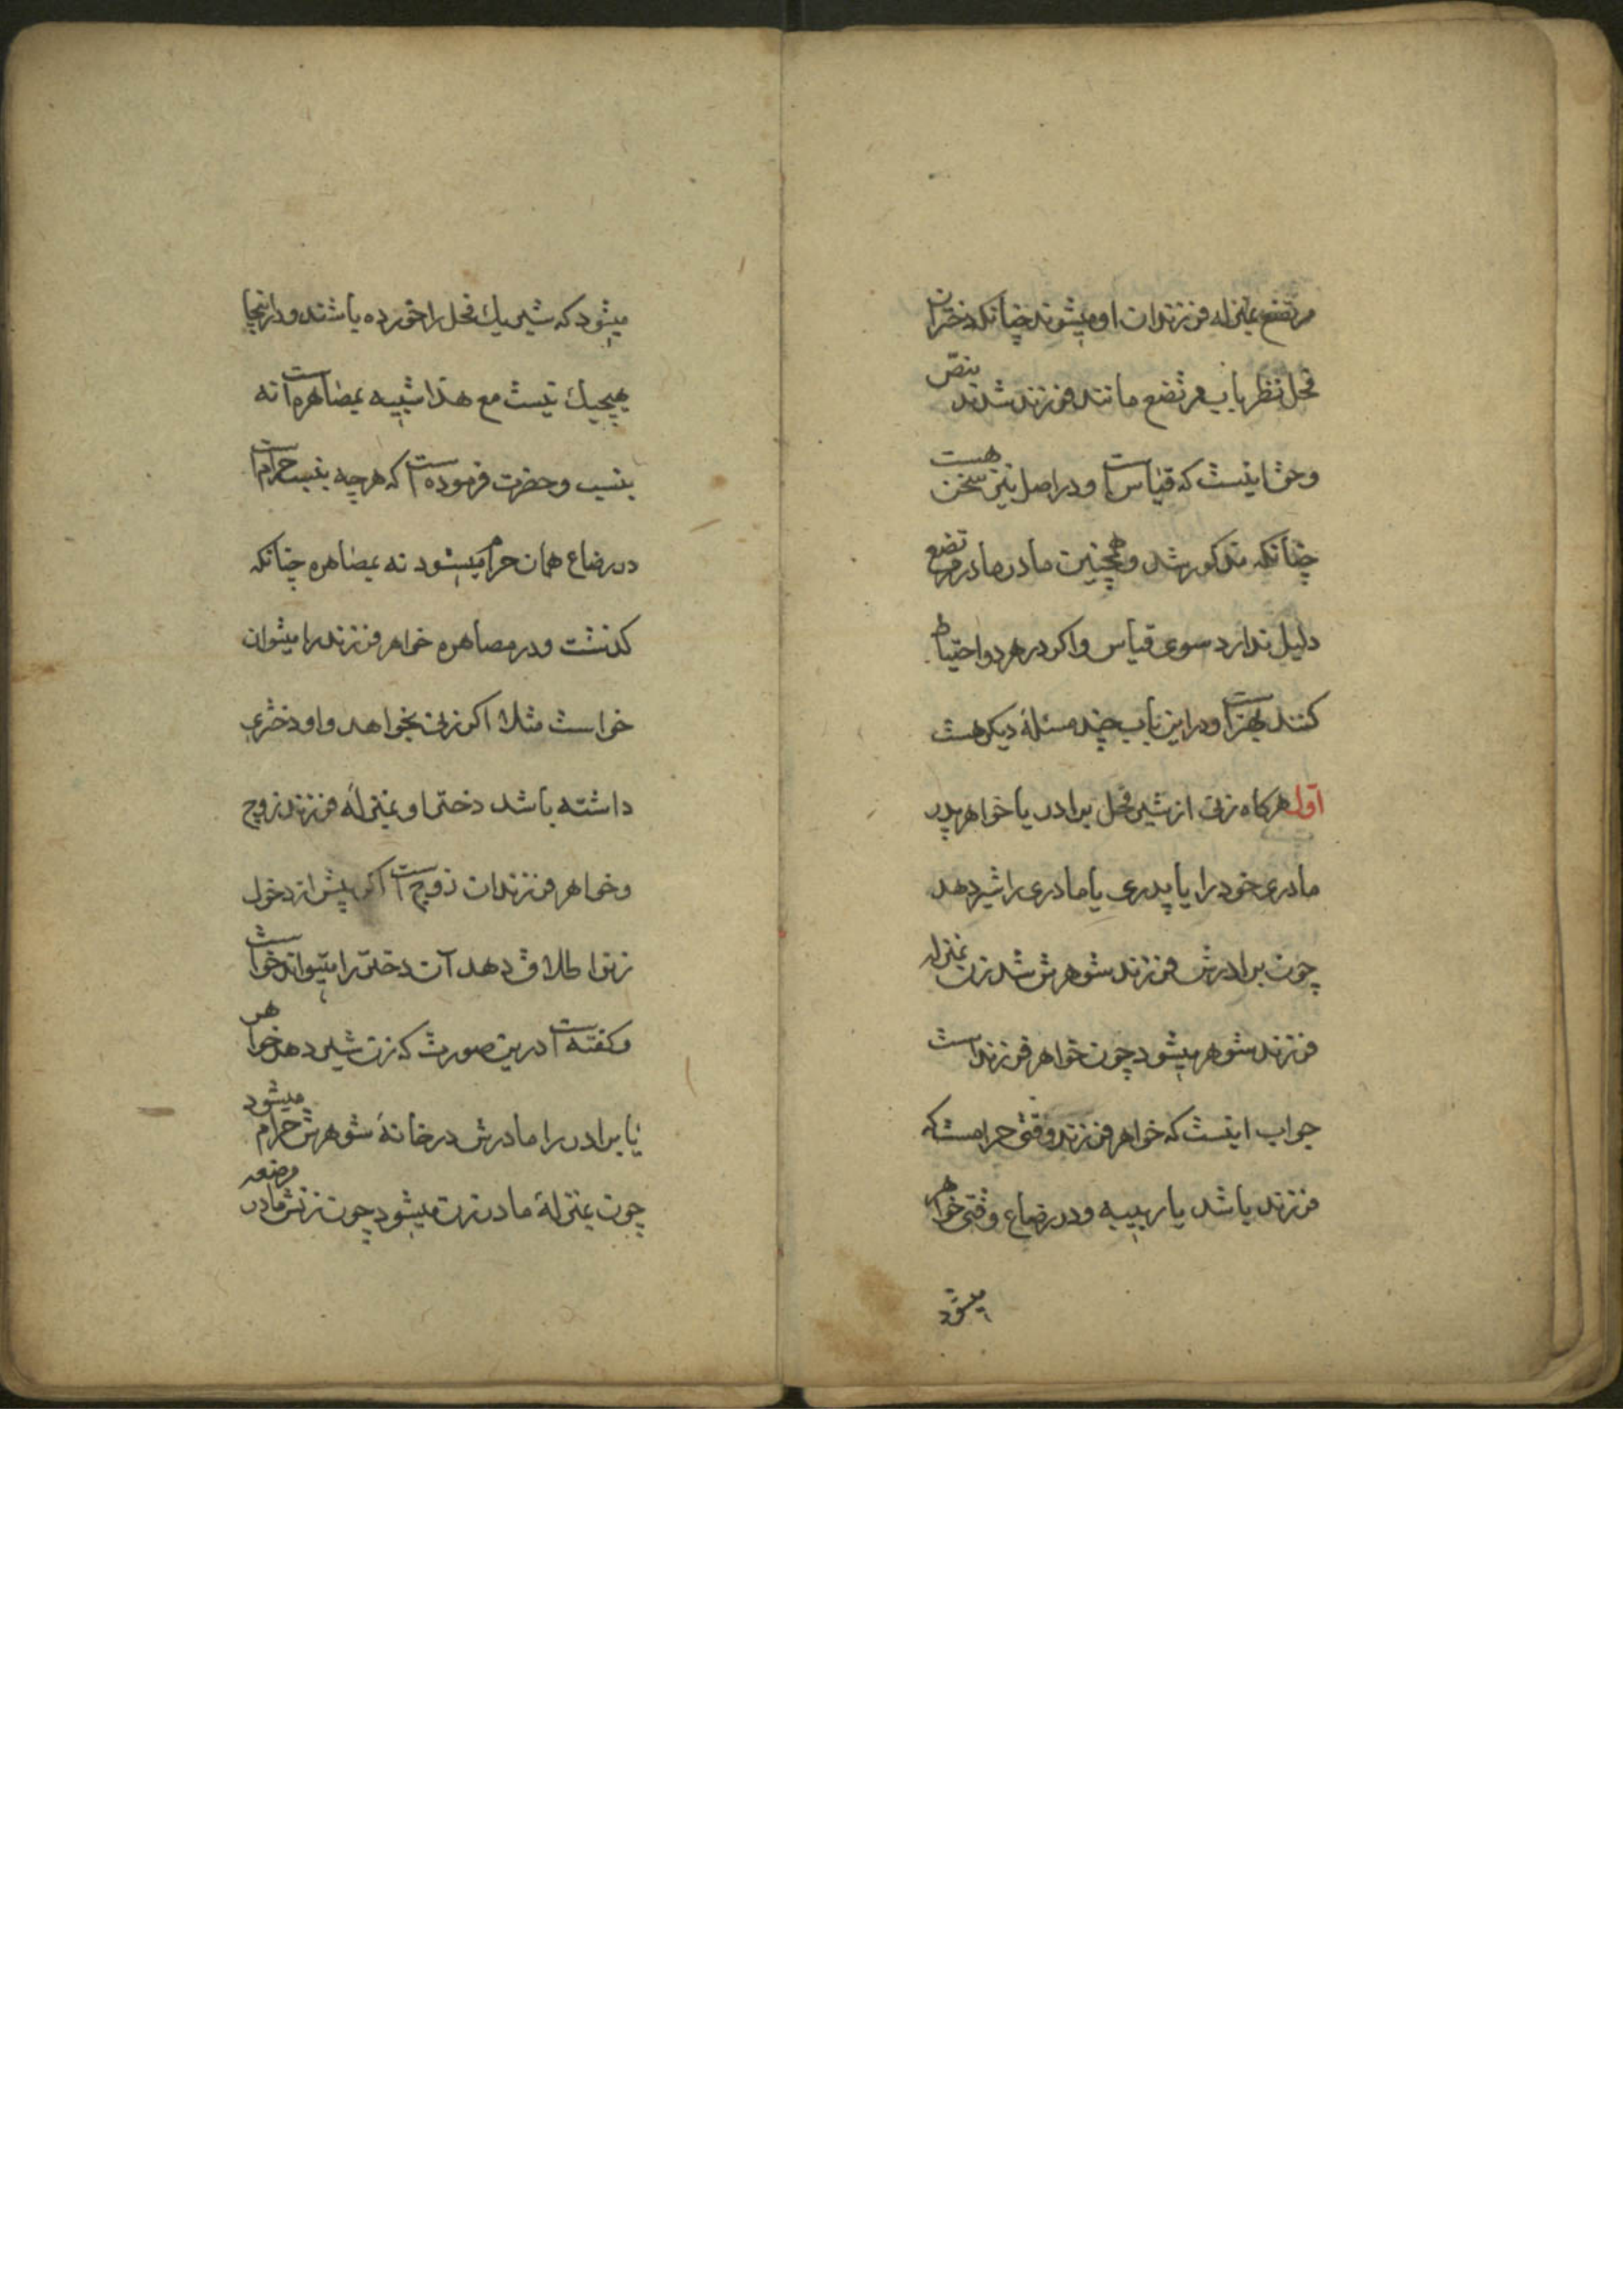 مرتضع بمنزله فرزندان او میشوند چنانکه دختران
فحل نظر باب مرتضع مانند فرزند شدند بنصّ
وحق اینست که قیاس است و در اصل نیز سخن هست
چنانکه مذکور شد و همچنین مادر مادر مرتضع
دلیل ندارد سوی قیاس واکر در هر دو احتیاط
کنند بهتر است و در این باب چند مسئلۀ دیکر هست
اول هرکاه زنی از شیر فحل برادر یا خواهر پدر
مادری خود را یا پدری یا مادری را شیر دهد
چون برادرش فرزند شوهرش شد زن بمنزله
فرزند شوهر میشود چون خواهر فرزند است
جواب اینست که خواهر فرزند وقتی حرامست که
فرزند باشد یا ربیبه و در رضاع وقتی خواهر
میشود
میشود که شیر یک فحل را خورده باشند و در اینجا
هیچیک نیست مع هذا شبیه بمصاهره است نه
بنسب و حضرت فرموده است که هرچه بنسب حرام است
در رضاع همان حرام میشود نه بمصاهره چنانکه
کذشت و در مصاهره خواهر فرزند را میتوان
خواست مثلا اکر زنی بخواهد و او دختری
داشته باشد دختر او بمنزلۀ فرزند زوج
و خواهر فرزندان زوج است اکر پیش از دخول
زنرا طلاق دهد آن دختر را میتواند خواست
و کفته است درین صورت که زن شیر دهد خواهر
یا برادر را مادرش در خانۀ شوهرش حرام میشود
چون بمنزلۀ مادر زن میشود چون زنش مادر مرضعه